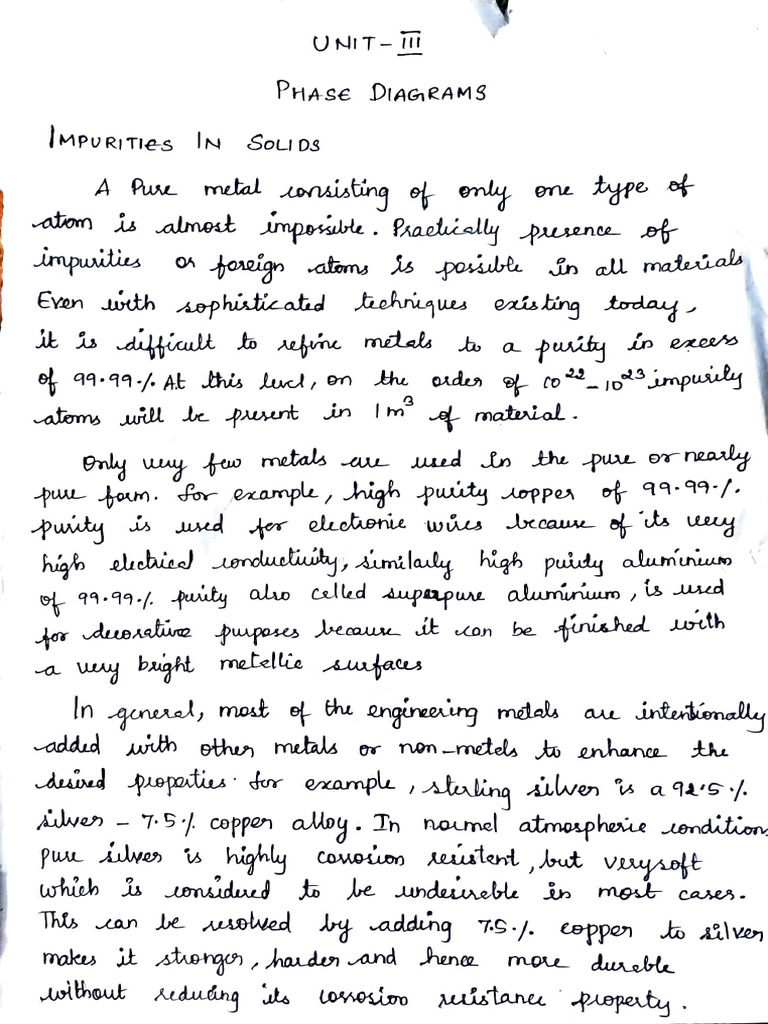 UNIT-III
PHASE DIAGRAMS
IMPURITIES IN SOLIDS
A Pure metal consisting of only one type of
atom is almost impossible. Practically presence of
impurities or foreign atoms is possible in all materials
Even with sophisticated techniques existing today,
it is difficult to refine metals to a purity in excess
of 99.99.% At this level, on the order of 10²²-10²³ impurity
atoms will be present in 1m³ of material.
Only very few metals are used in the pure or nearly
pure form. For example, high purity copper of 99.99.%
purity is used for electronic wires because of its very
high electrical conductivity, similarly high purity aluminium
of 99.99.% purity also called superpure aluminium, is used
for decorative purposes because it can be finished with
a very bright metellic surfaces
In general, most of the engineering metals are intentionally
added with other metals or non-metels to enhance the
desired properties. For example, sterling silver is a 92.5.%
silver - 7.5.% copper alloy. In normel atmospheric condition
pure silver is highly corrosion resistent, but very soft
which is considered to be undesireble in most cases.
This can be resolved by adding 7.5.% copper to silver
makes it stronger, harder and hence more durable
without reducing its corrosion resistance property.